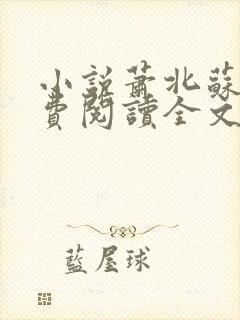 小説蕭北蘇
費閱讀全文
藍屋球